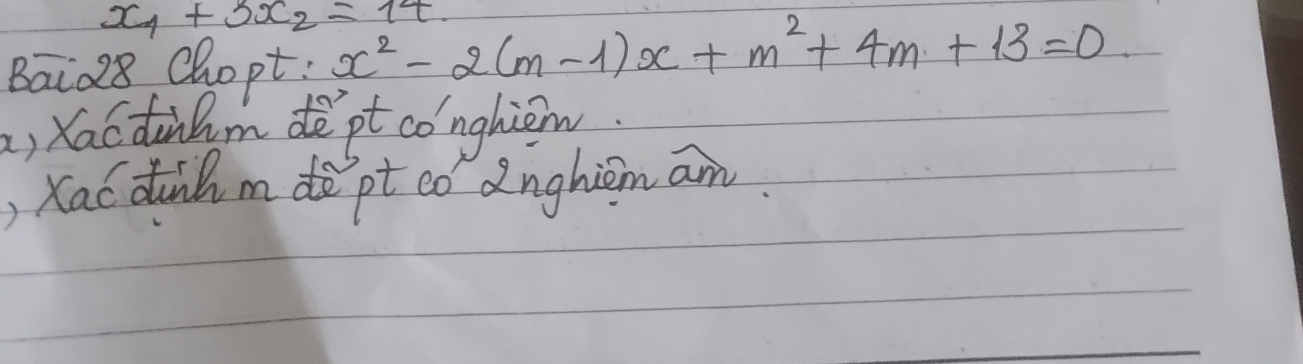 x₁ + 3x₂ = 14.
Bài 28 Cho pt: x² - 2(m - 1)x + m² + 4m + 13 = 0.
a, Xác định m để pt có nghiệm.
, Xác định m để pt có 2 nghiệm âm.